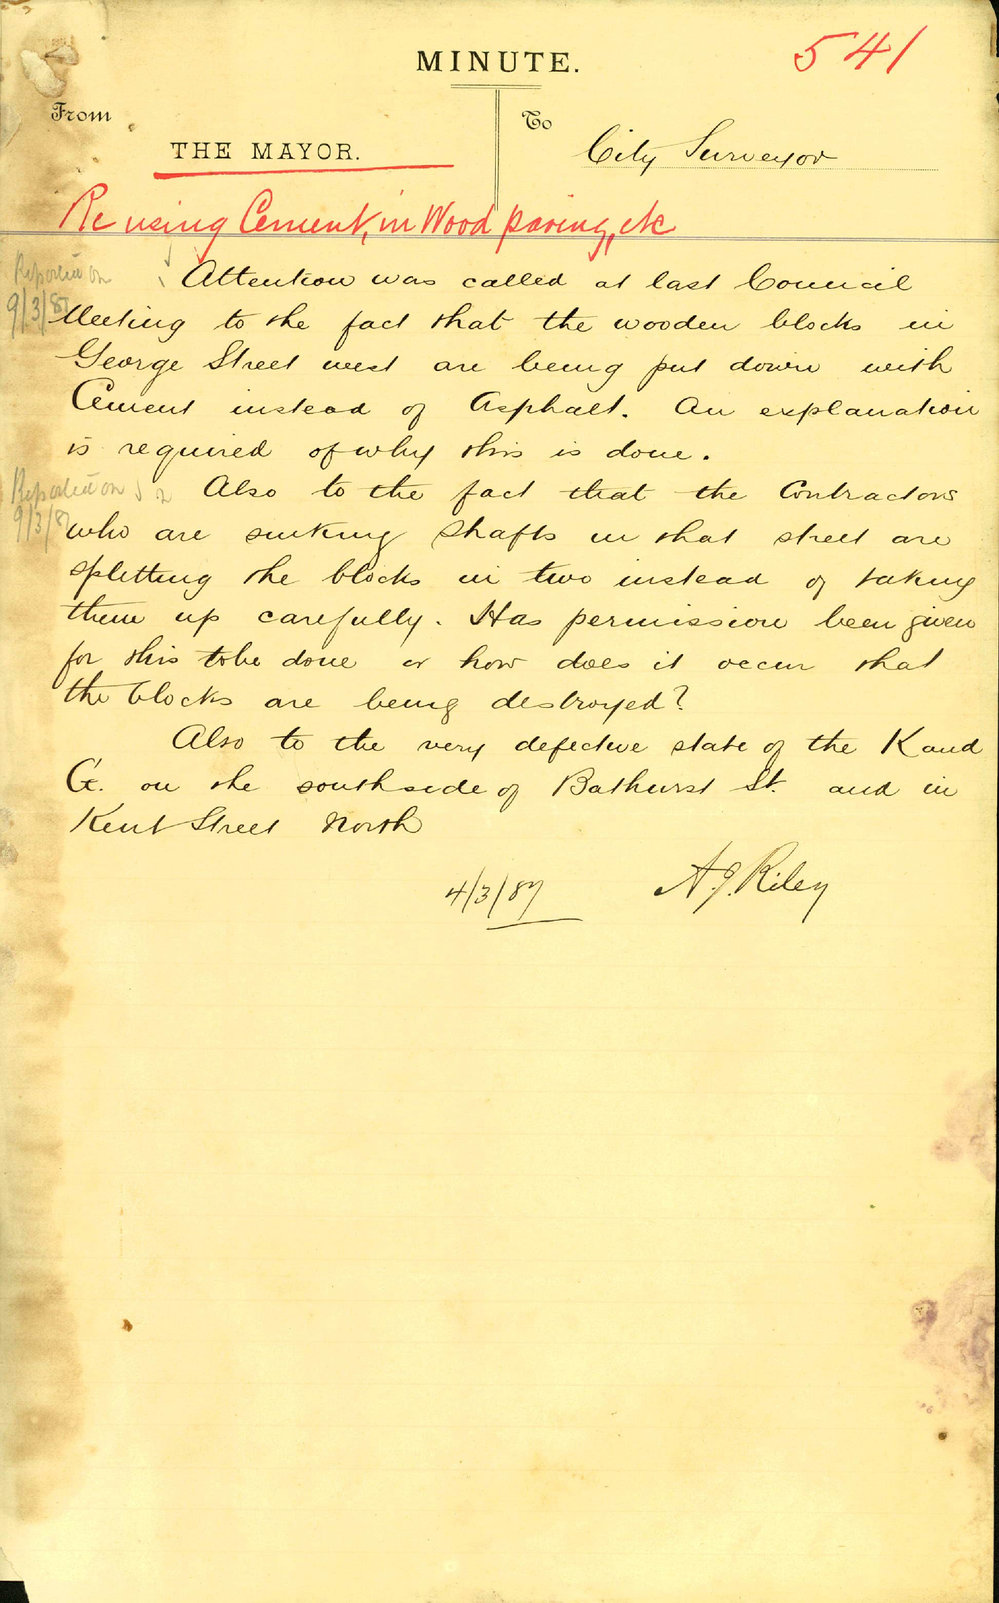 MINUTE.
541
From
To
THE MAYOR.
City Surveyor
Re using Cement, in Wood paving, etc
Reported on
9/3/87
Attention was called at last Council
Meeting to the fact that the wooden blocks in
George Street west are being put down with
Cement instead of Asphalt. An explanation
is required of why this is done.
Reported on
9/3/87
2 Also to the fact that the Contractors
who are sinking shafts in that street are
splitting the blocks in two instead of taking
them up carefully. Has permission been given
for this to be done or how does it occur that
the blocks are being destroyed?
Also to the very defective state of the K and
G. on the southside of Bathurst St. and in
Kent Street North
4/3/87 A.J. Riley